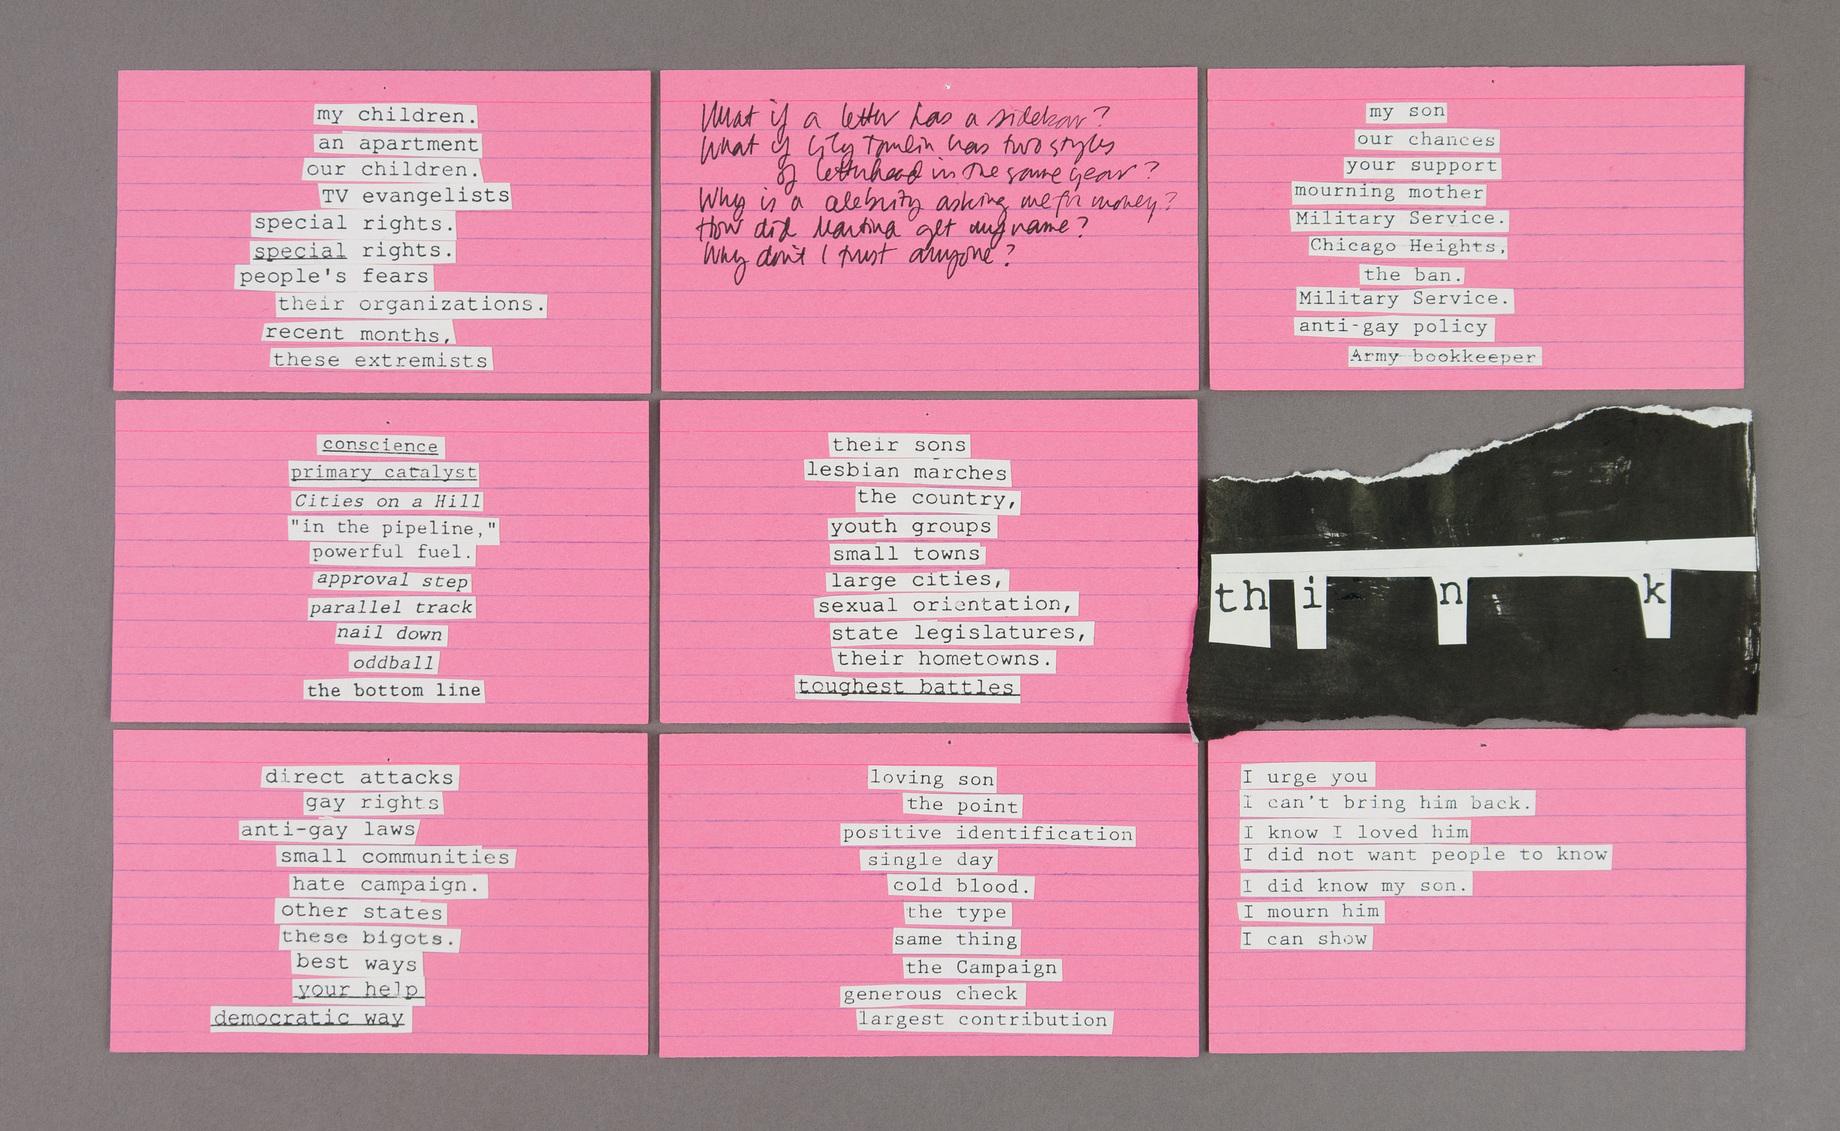 my children.
an apartment
our children.
TV evangelists
special rights.
special rights.
people's fears
their organizations.
recent months,
these extremists
What if a letter has a sidebar?
What if Lily Tomlin has two styles
of letterhead in the same year?
Why is a celebrity asking me for money?
How did Martina get my name?
Why don't I trust anyone?
my son
our chances
your support
mourning mother
Military Service.
Chicago Heights,
the ban.
Military Service.
anti-gay policy
Army bookkeeper
conscience
primary catalyst
Cities on a Hill
"in the pipeline,"
powerful fuel.
approval step
parallel track
nail down
oddball
the bottom line
their sons
lesbian marches
the country,
youth groups
small towns
large cities,
sexual orientation,
state legislatures,
their hometowns.
toughest battles
th i n k
direct attacks
gay rights
anti-gay laws
small communities
hate campaign.
other states
these bigots.
best ways
your help
democratic way
loving son
the point
positive identification
single day
cold blood.
the type
same thing
the Campaign
generous check
largest contribution
I urge you
I can't bring him back.
I know I loved him
I did not want people to know
I did know my son.
I mourn him
I can show